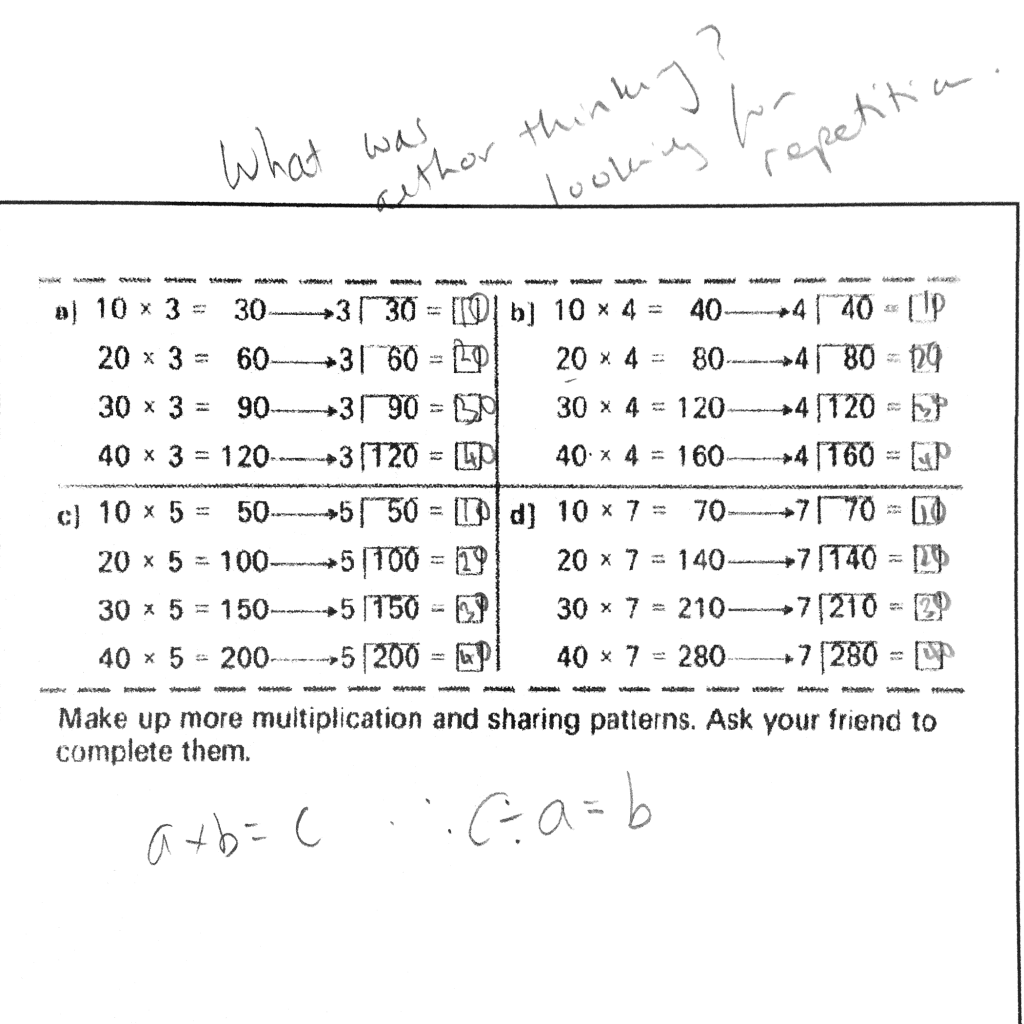 What was author thinking?
looking for repetition.
a) 10 × 3 = 30 → 3 ⟌ 30 = 10
20 × 3 = 60 → 3 ⟌ 60 = 20
30 × 3 = 90 → 3 ⟌ 90 = 30
40 × 3 = 120 → 3 ⟌ 120 = 40
b) 10 × 4 = 40 → 4 ⟌ 40 = 10
20 × 4 = 80 → 4 ⟌ 80 = 20
30 × 4 = 120 → 4 ⟌ 120 = 30
40 × 4 = 160 → 4 ⟌ 160 = 40
c) 10 × 5 = 50 → 5 ⟌ 50 = 10
20 × 5 = 100 → 5 ⟌ 100 = 20
30 × 5 = 150 → 5 ⟌ 150 = 30
40 × 5 = 200 → 5 ⟌ 200 = 40
d) 10 × 7 = 70 → 7 ⟌ 70 = 10
20 × 7 = 140 → 7 ⟌ 140 = 20
30 × 7 = 210 → 7 ⟌ 210 = 30
40 × 7 = 280 → 7 ⟌ 280 = 40
Make up more multiplication and sharing patterns. Ask your friend to
complete them.
a × b = c ∴ c ÷ a = b